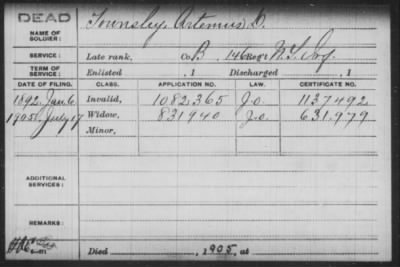 DEAD
NAME OF SOLDIER: Townsley, Artemus D.
SERVICE: Late rank, Co. B, 146 Reg't N.Y. Inf.
TERM OF SERVICE: Enlisted , 1 Discharged , 1
DATE OF FILING. CLASS. APPLICATION NO. LAW. CERTIFICATE NO.
1892, Jan. 6 Invalid, 1082.365 J.o. 1137492
1905, July 17 Widow, 831940 J.o. 631.979
Minor,
ADDITIONAL SERVICES:
REMARKS:
Died , 1905, at